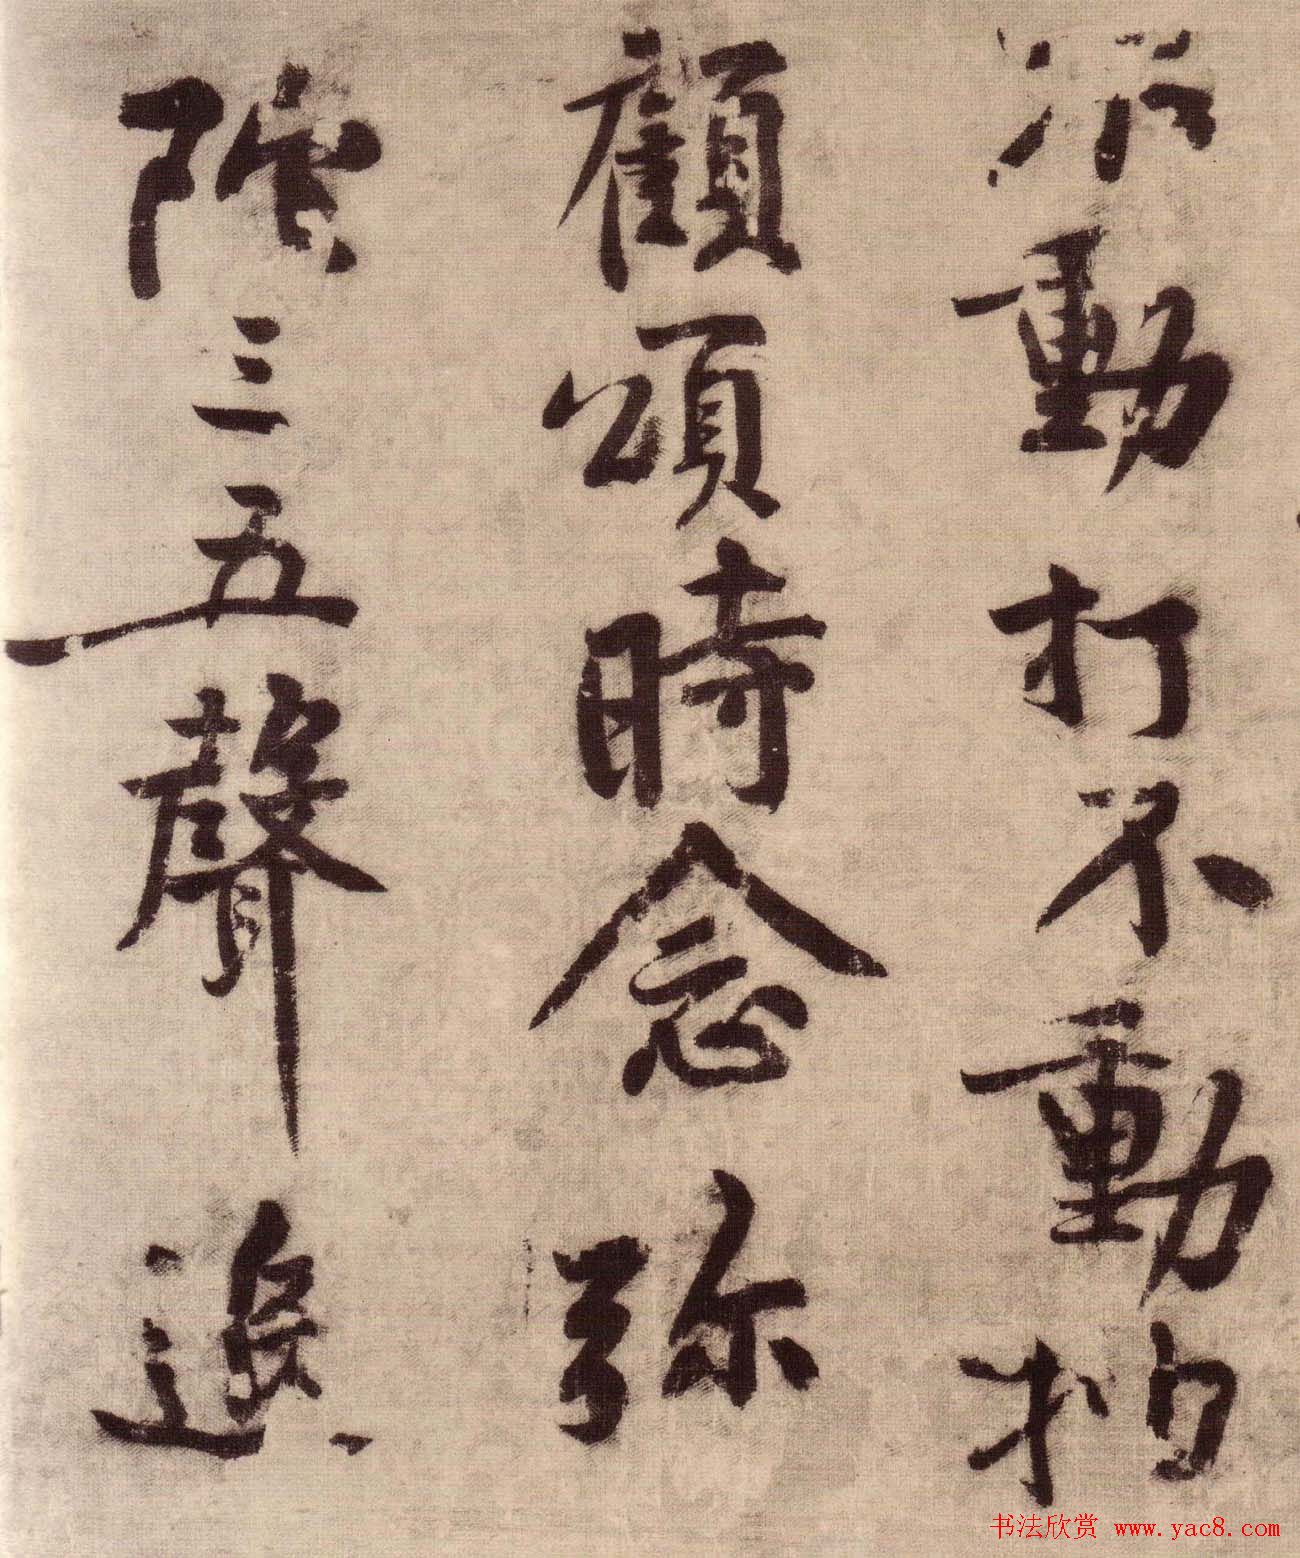 動打不動
顧頌時念弥
陀三五聲退
书法欣赏 www.yac8.com